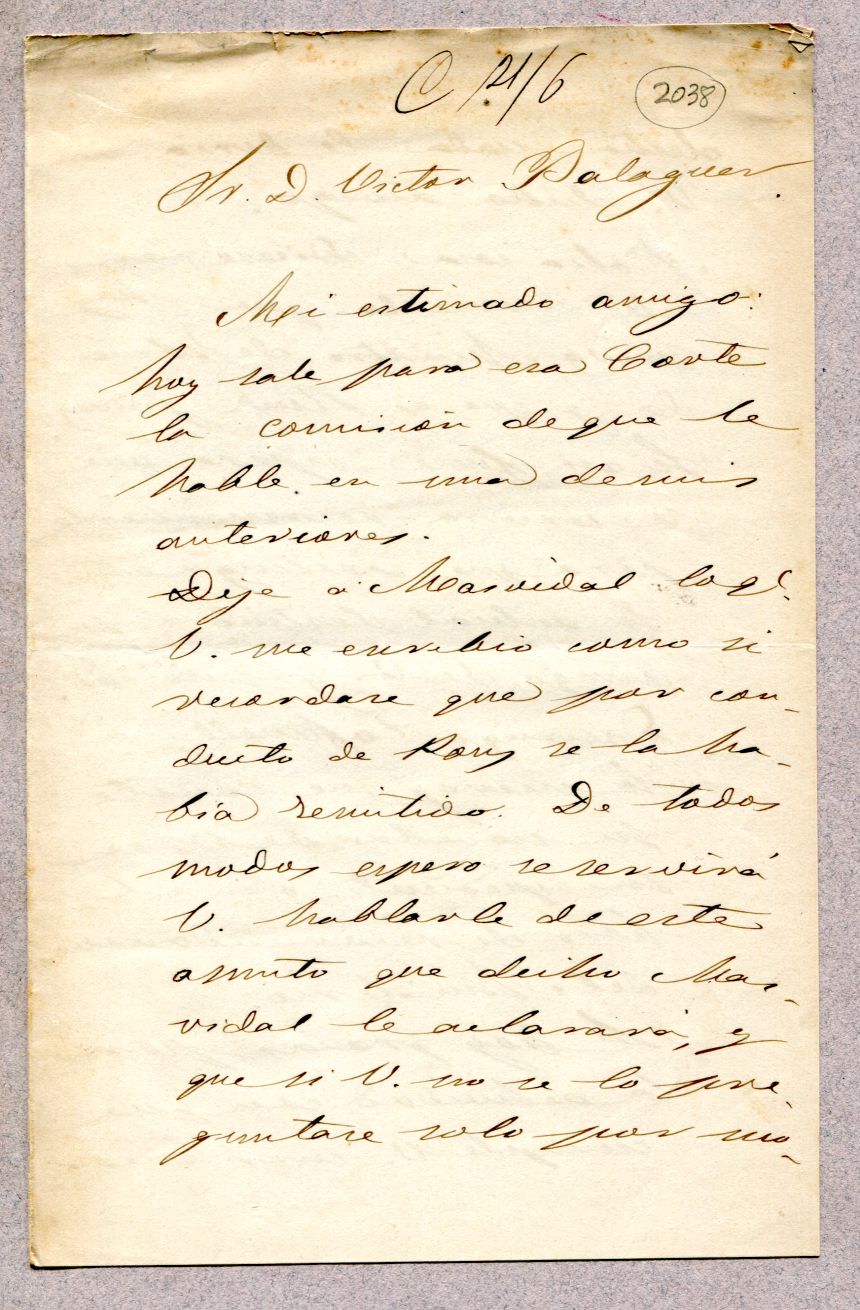 C 21/6
2038
Sr. D. Victor Balaguer.
Mi estimado amigo:
hoy sale para esa Corte
la comisión de que le
hable en una de mis
anteriores.
Dije a Masvidal lo q.
V. me escribio como si
recordase que por con-
ducto de se la ha-
bia remitido. De todos
modos espero se servirá
V. hablarle de este
asunto que dicho Mas-
vidal le aclarará, y
que si V. no se lo pre-
guntase solo por mo-